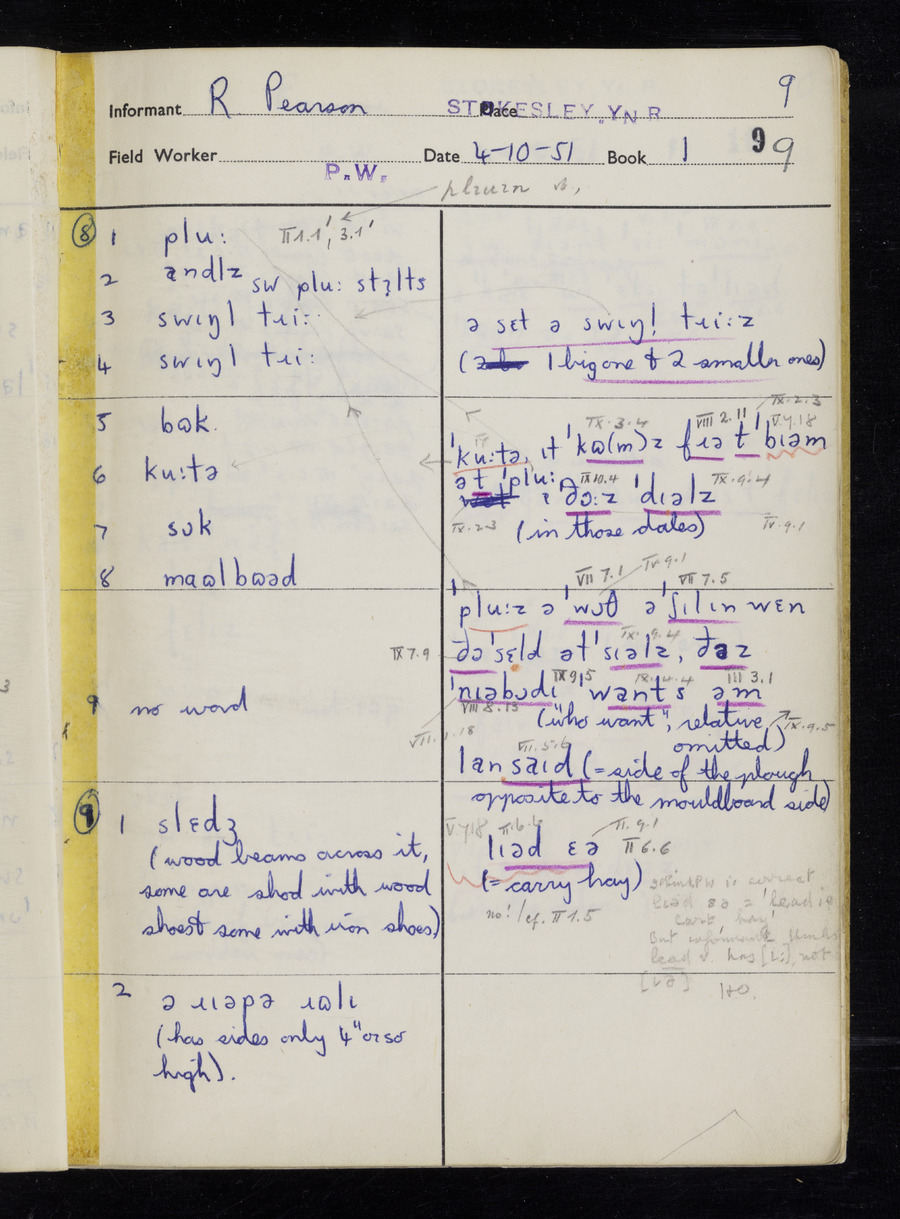 9
Informant R Pearson Place STOKESLEY, YN R
9 9
Field Worker P.W. Date 4-10-51 Book 1
⑧ 1 pluː II 1.1', 3.1'
2 andlz sw pluː stɪlts
3 swɪŋl tɹiː
ə sɛt ə swɪŋl tɹiːz
4 swɪŋl tɹiː
(1 big one & 2 smaller ones)
IX.2.3
5 bɷk.
IX.3.4 VIII 2.11 V.4.18
ˈkuːtə, ɪt ˈkɷ(m)z fɹə tˈ bɪəm
6 kuːtə
ət ˈpluː, ɪ ðɔːz ˈdɪəlz
IX 10.4 IX.9.4
IX.2.3 (in those dales) IV.9.1
7 sɔk
8 maɷlbɷəd
VII 7.1 IV 9.1 VII 7.5
ˈpluːz ə ˈwɔθ ə ˈʃɪlɪn wɛn
IX 7.9 ðə ˈsɛld ət ˈsɪəlz, ðəz
IX.9.4
IX 9.5 IX.4.4 III 3.1
ˈnɪəbʊdɪ ˈwants əm
9 no word
VIII.8.13
("who want", relative IX.9.5
omitted)
VII.1.18
VII.5.6
lansaɪd (= side of the plough
opposite to the mouldboard side)
⑨ 1 slɛdʒ
(wood beams across it,
some are shod with wood
shoes & some with iron shoes)
V 4 18 II.6.6 II.9.1
lɪəd ɛə II 6.6
(= carry hay)
no! / cf. II 1.5
I think PW is correct
lɪəd ɛə = 'lead i.e.
cart hay'
But informant
lead v. has [iː], not
[ɪə]
2 ə ɹɪəpə ɹɷlɪ
(has sides only 4" or so
high).